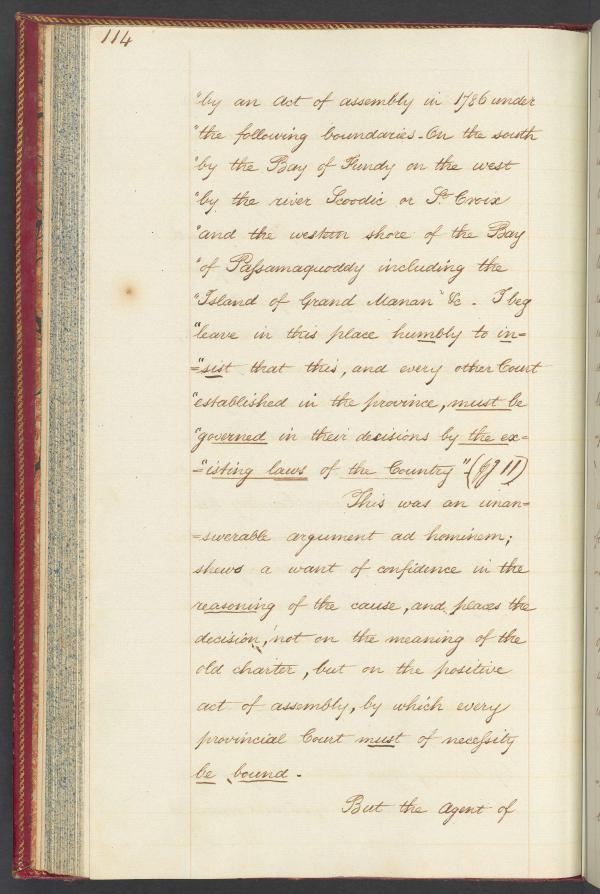 114
"by an act of assembly in 1786 under
"the following boundaries. On the south
"by the Bay of Fundy on the west
"by the river Scoodic or St Croix
"and the western shore of the Bay
"of Paſsamaquoddy including the
"Island of Grand Manan" &c. I beg
"leave in this place humbly to in=
="sist that this, and every other Court
"established in the province, must be
"governed in their decisions by the ex=
="isting laws of the Country" (JJ 11)
This was an unan=
=swerable argument ad hominem;
shews a want of confidence in the
reasoning of the cause, and places the
decision, not on the meaning of the
old charter, but on the positive
act of assembly, by which every
provincial Court must of neceſsity
be bound.
But the agent of